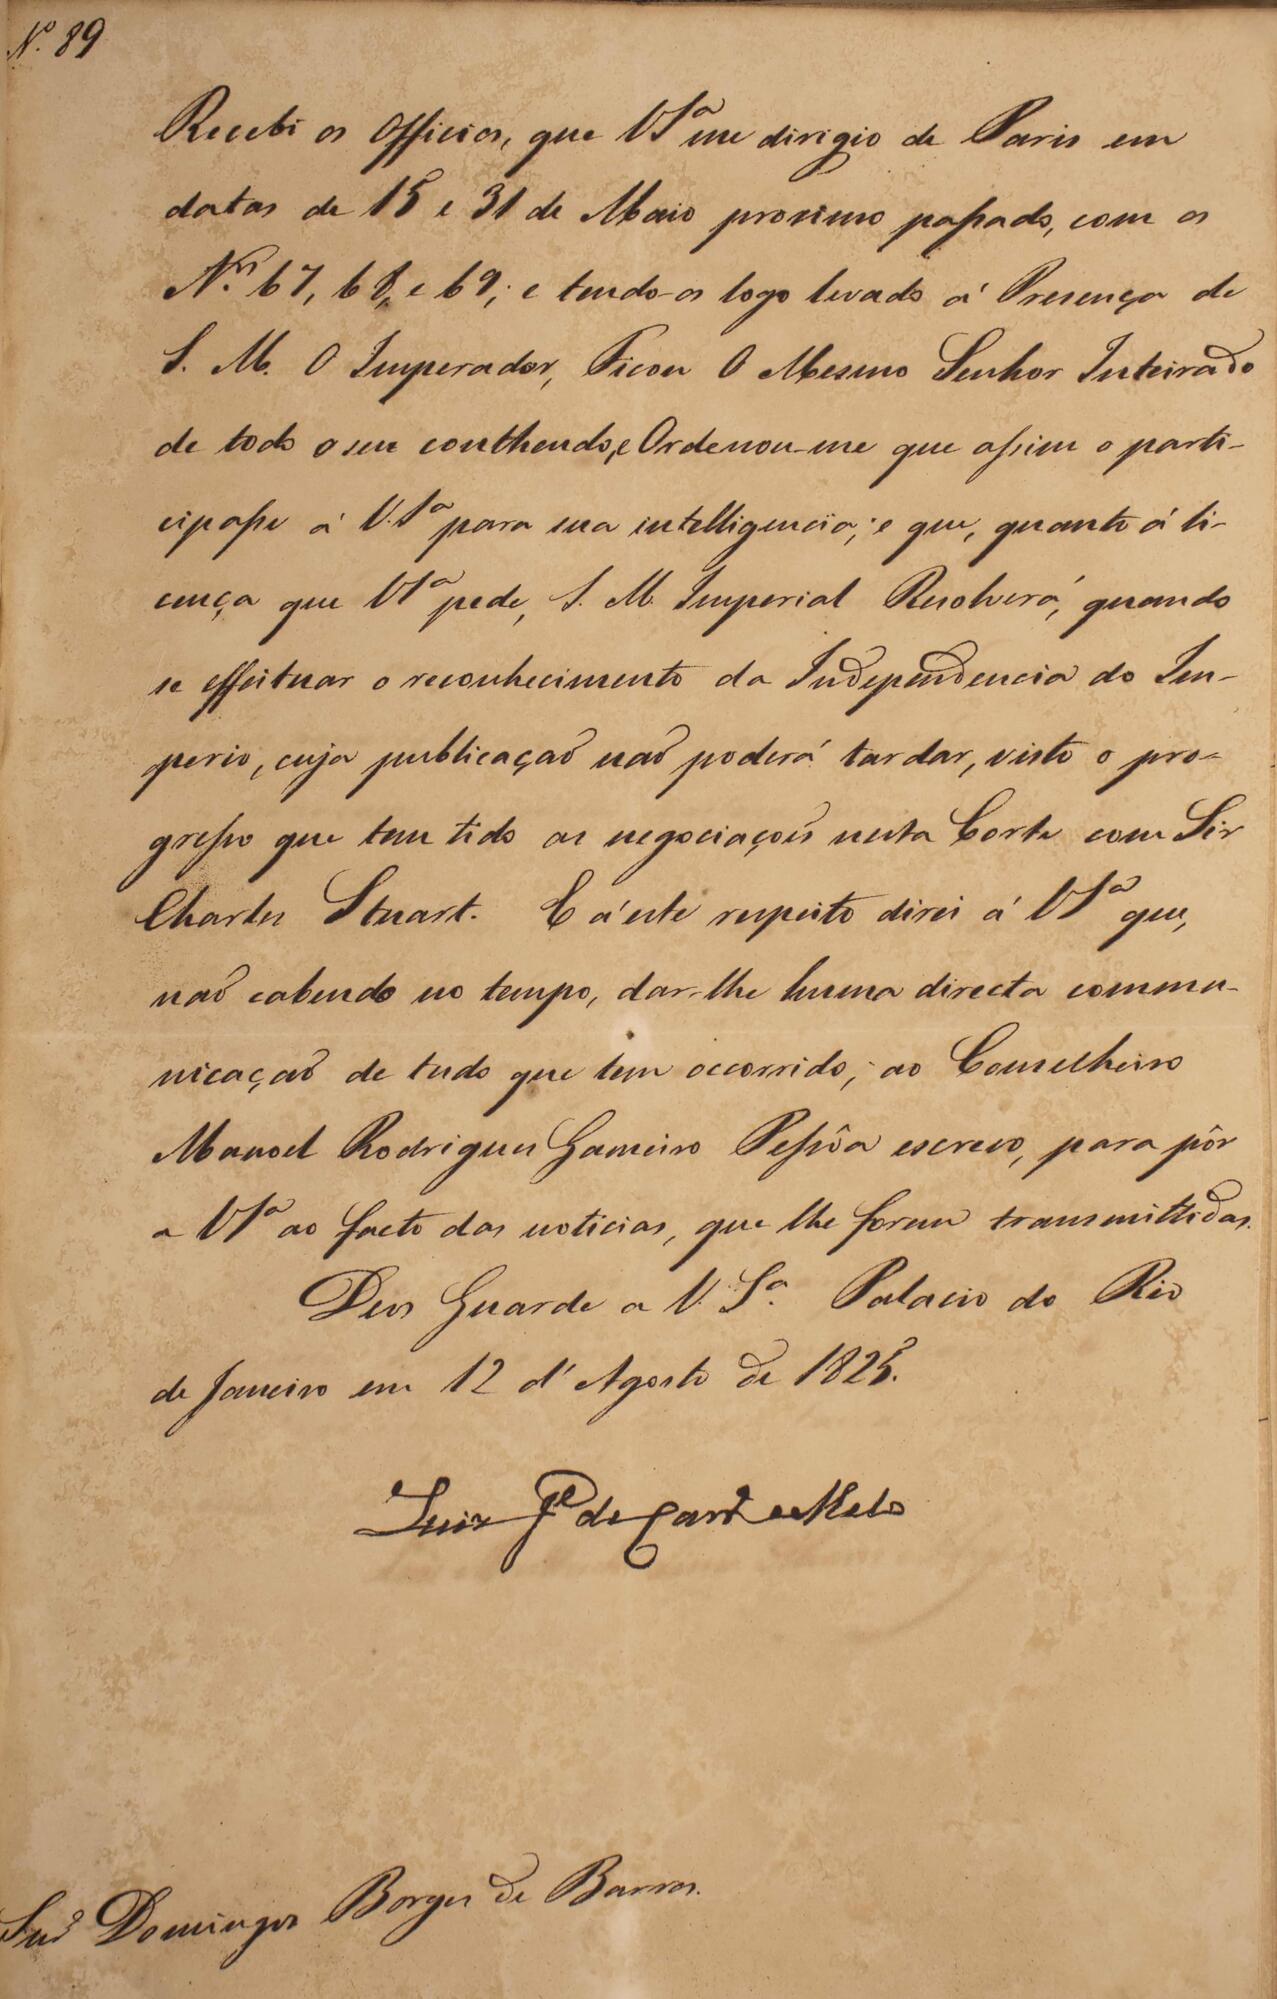 Nº 89
Recebi os Officios, que VSª me dirigio de Paris em
datas de 15 e 31 de Maio proximo passado, com os
Nºs 67, 68, e 69; e tendo-os logo levado á Presença de
S. M. O Imperador, Ficou O Mesmo Senhor Inteirado
de todo o seu conthendo, e Ordenou-me que assim o parti-
cipasse á V.Sª para sua intelligencia; e que, quanto á li-
cença que VSª pede, S. M. Imperial Resolverá, quando
se effeituar o reconhecimento da Independencia do Im-
perio, cuja publicaçaõ naõ poderá tardar, visto o pro-
gresso que tem tido as negociaçoẽs nesta Corte com Sir
Charles Stuart. E á este respeito direi á VSª que,
naõ cabendo no tempo, dar-lhe huma directa commu-
nicaçaõ de tudo que tem occorrido, ao Conselheiro
Manoel Rodrigues Gameiro Pessôa escrevo, para pôr
a VSª ao facto das noticias, que lhe foram transmittidas.
Deos Guarde a V. Sª. Palacio do Rio
de Janeiro em 12 d'Agosto de 1825.
Luiz Jº de Carvº e Melo
Snr Domingos Borges de Barros.